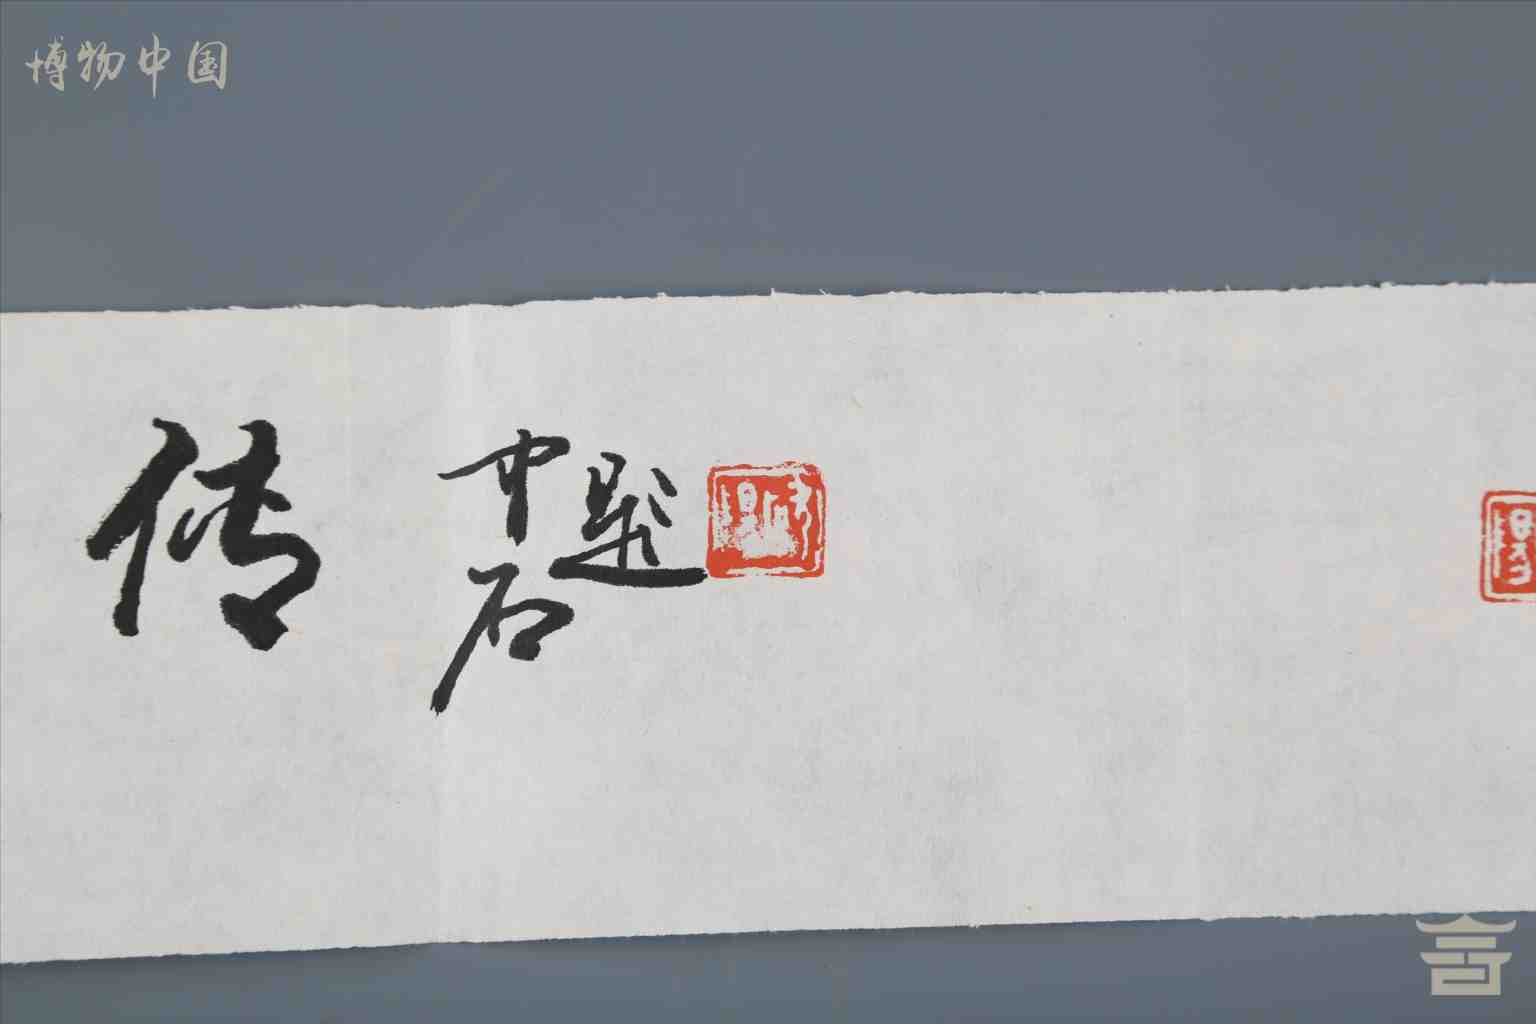 博物中国
传
中石
题